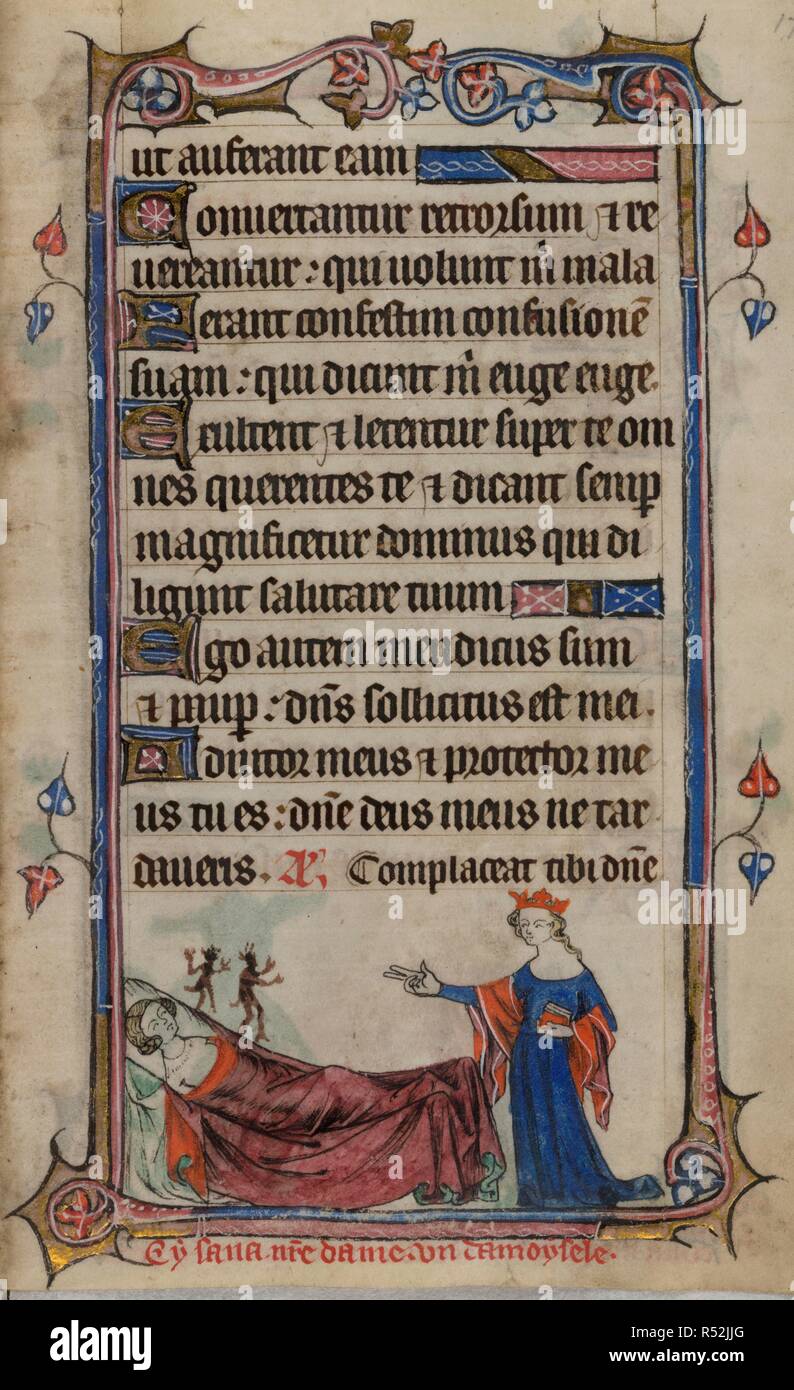 ut auferant eam
Conuertantur retrorsum & re
uereantur : qui uolunt m̄ mala
Ferant confestim confusionē
suam : qui dicunt m̄ euge euge.
Exultent & letentur super te om
nes querentes te & dicant semꝑ
magnificetur dominus qui di
ligunt salutare tuum
Ego autem mendicus sum
& pauꝑ : dn̄s sollicitus est mei.
Adiutor meus & protector me
us tu es : dn̄e deus meus ne tar
daueris. Añ Complaceat tibi dn̄e
Cy sana nr̄e dame un damoysele.
alamy
Image ID: R52JJG
www.alamy.com